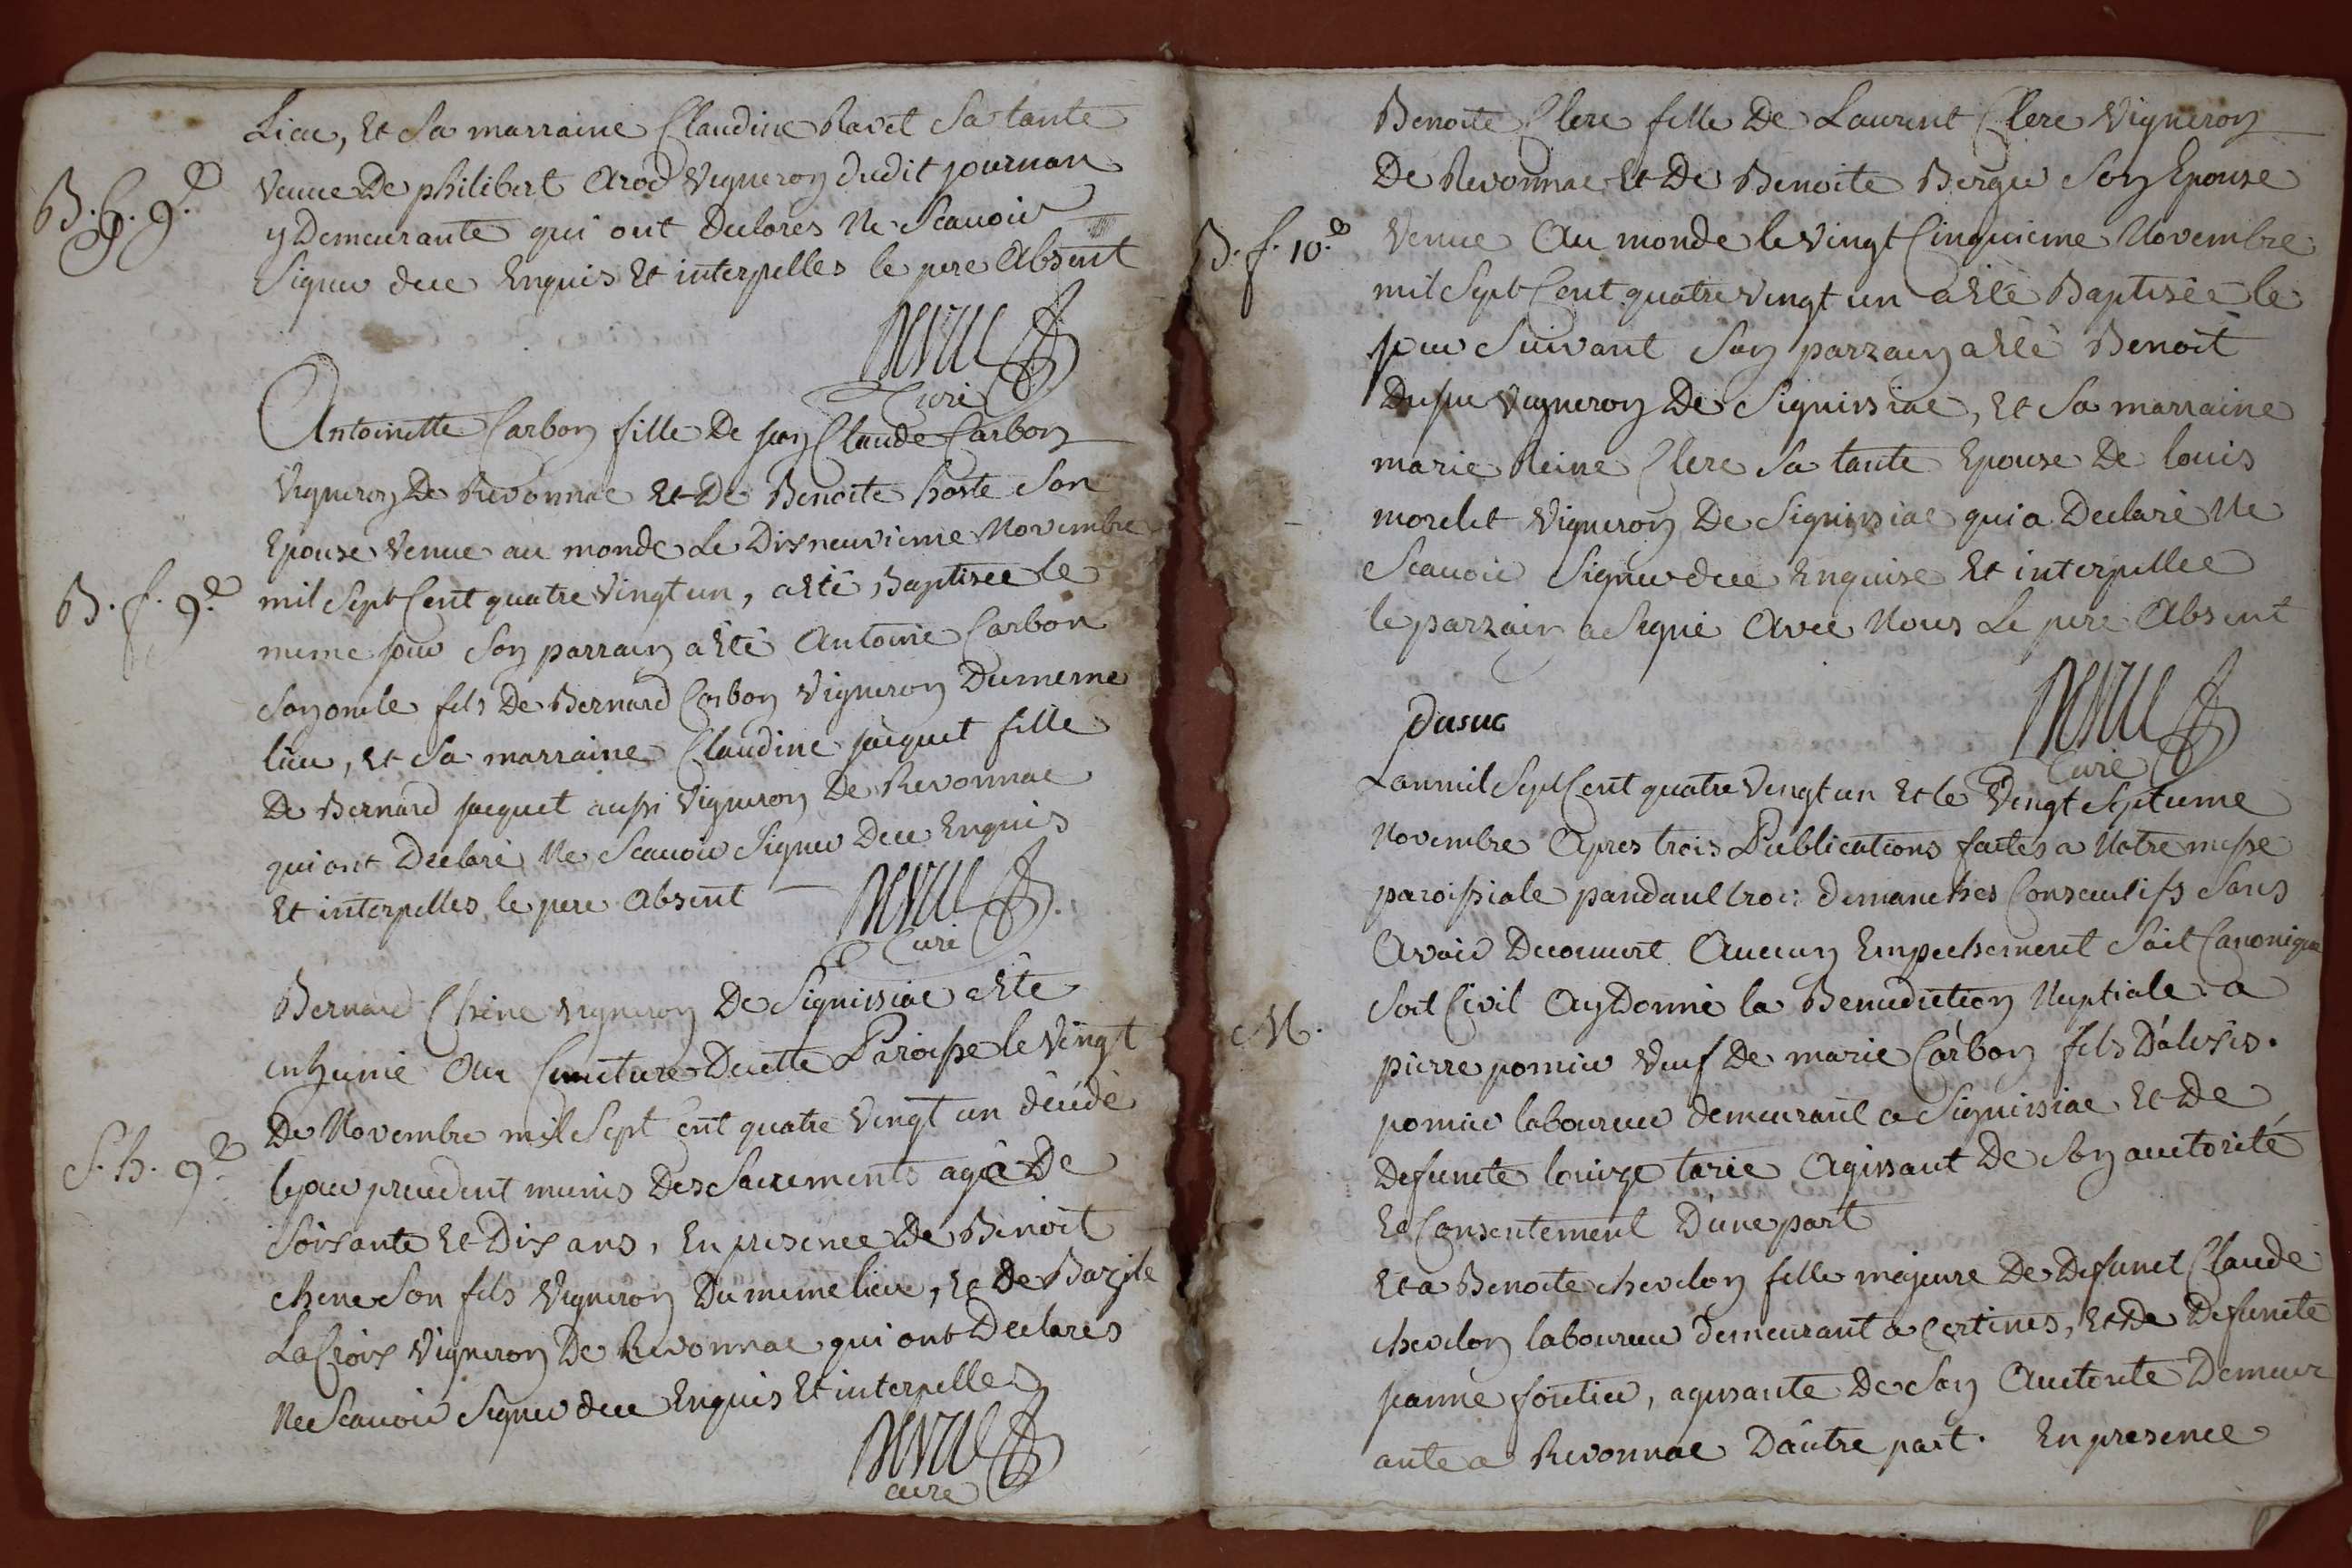 Lieu, et sa marraine Claudine Ravet sa tante
B. G. 9.e
veuve De philibert Arod Vigneron dudit journan
y Demeurante qui ont declares ne scavoir
signer dec Enquis et interpelles le pere Absent
Curé
Antoinette Carbon fille De jean Claude Carbon
Vigneron De Revonnac et De Benoite hoste son
Epouse venue au monde Le Disneuvieme Novembre
B. f. 9.e
mil sept Cent quatre vingt un, a eté Baptisée le
meme jour son parrain a eté Antoine Carbon
son oncle fils De Bernard Carbon vigneron Du meme
lieu, et sa marraine Claudine jacquet fille
De Bernard jacquet aussi vigneron De Revonnac
qui ont Declaré ne scavoir signer Dec Enquis
et interpelles le pere Absent
Curé
Bernard Chêne vigneron De Signissiac a été
inhumé Au Cimetiere De cette Paroisse le vingt
De Novembre mil sept cent quatre vingt un décédé
S. h. 9.e
le jour precedent munis Des Sacrements agé De
soisante et Dix ans, En presence De Benoit
chene son fils vigneron Du meme lieu, et De Bazile
La Croix vigneron De Revonnac qui ont Declares
ne scavoir signer dec Enquis et interpelles
curé
Benoite Clere fille De Laurent Clere Vigneron
De Revonnac et De Benoite Berger son Epouse
B. f. 10.e
venue Au monde le vingt Cinquieme Novembre
mil sept Cent quatre vingt un a eté Baptisée le
jour suivant son parrain a eté Benoit
Dusuc vigneron De Signissiac, et sa marraine
marie Reine Clere sa tante Epouse De louis
morelet vigneron De Signissiac qui a Declaré ne
scavoir signer dec Enquise et interpellee
le parrain a signé Avec Nous Le pere Absent
Dusuc
Curé
L'an mil sept Cent quatre vingt un et le vingt septieme
Novembre Apres trois Publications faites a Notre messe
paroissiale pandant trois dimanches Consecutifs sans
Avoir Decouvert Aucun Empechement soit Canonique
soit Civil Ay Donné la Benediction Nuptiale a
M.
pierre pomier veuf De marie Carbon fils D'alexis
pomier laboureur demeurant a Signissiac et De
Defuncte louize tarie Agissant De son auctorité
et Consentement D'une part
et a Benoite chevelon fille majeure De Defunct Claude
chevelon laboureur demeurant a Certines, et De Defuncte
jeanne fontier, agissante De son Auctorite Demeur
ante a Revonnac D'autre part. En presence